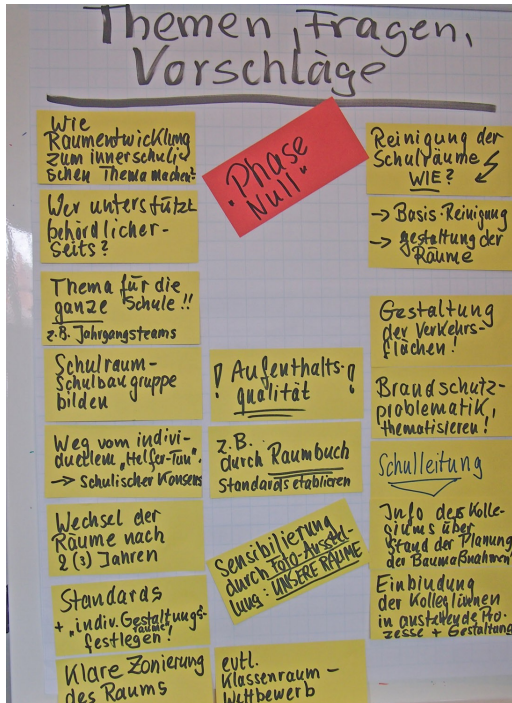 Themen, Fragen,
Vorschläge
Wie
Raumentwicklung
zum innerschuli
schen Thema machen?
Wer unterstützt
behördlicher-
seits?
Thema für die
ganze Schule!!
z.B. Jahrgangsteams
Schulraum-
Schulbaugruppe
bilden
Weg vom indivi-
duellem "Helfer-Tun".
→ Schulischer Konsens
Wechsel der
Räume nach
2 (3) Jahren
Standards
+ "indiv. Gestaltungs-
räume"
festlegen!
Klare Zonierung
des Raums
"Phase
Null"
! Aufenthalts- !
qualität
z.B.
durch Raumbuch
Standards etablieren
Sensibilisierung
durch Foto-Ausstel-
lung: UNSERE RÄUME
evtl.
Klassenraum-
Wettbewerb
Reinigung der
Schulräume
WIE?
→ Basis-Reinigung
→ gestaltung der
Räume
Gestaltung
der Verkehrs-
flächen!
Brandschutz-
problematik,
thematisieren!
Schulleitung
Info des Kolle-
giums über
Stand der Planung
der Baumaßnahmen
Einbindung
der Kolleg/innen
in anstehende Pro-
zesse + Gestaltung